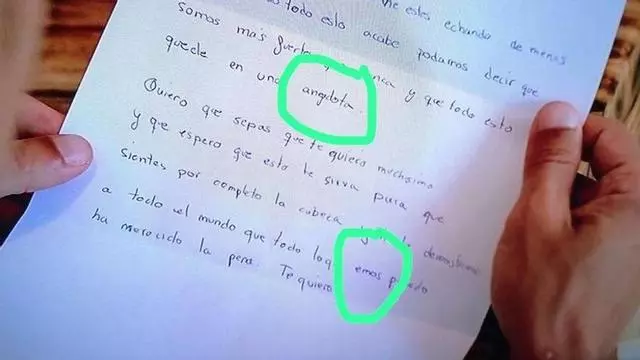 me estés echando de menos
todo esto acabe podamos decir que
somos más fuertes y que todo esto
quede en una angdota.
Quiero que sepas que te quiero muchísimo
y que espero que esto te sirva para que
sientes por completo la cabeza y
a todo el mundo que todo lo q emos pasado
ha merecido la pena. Te quiero